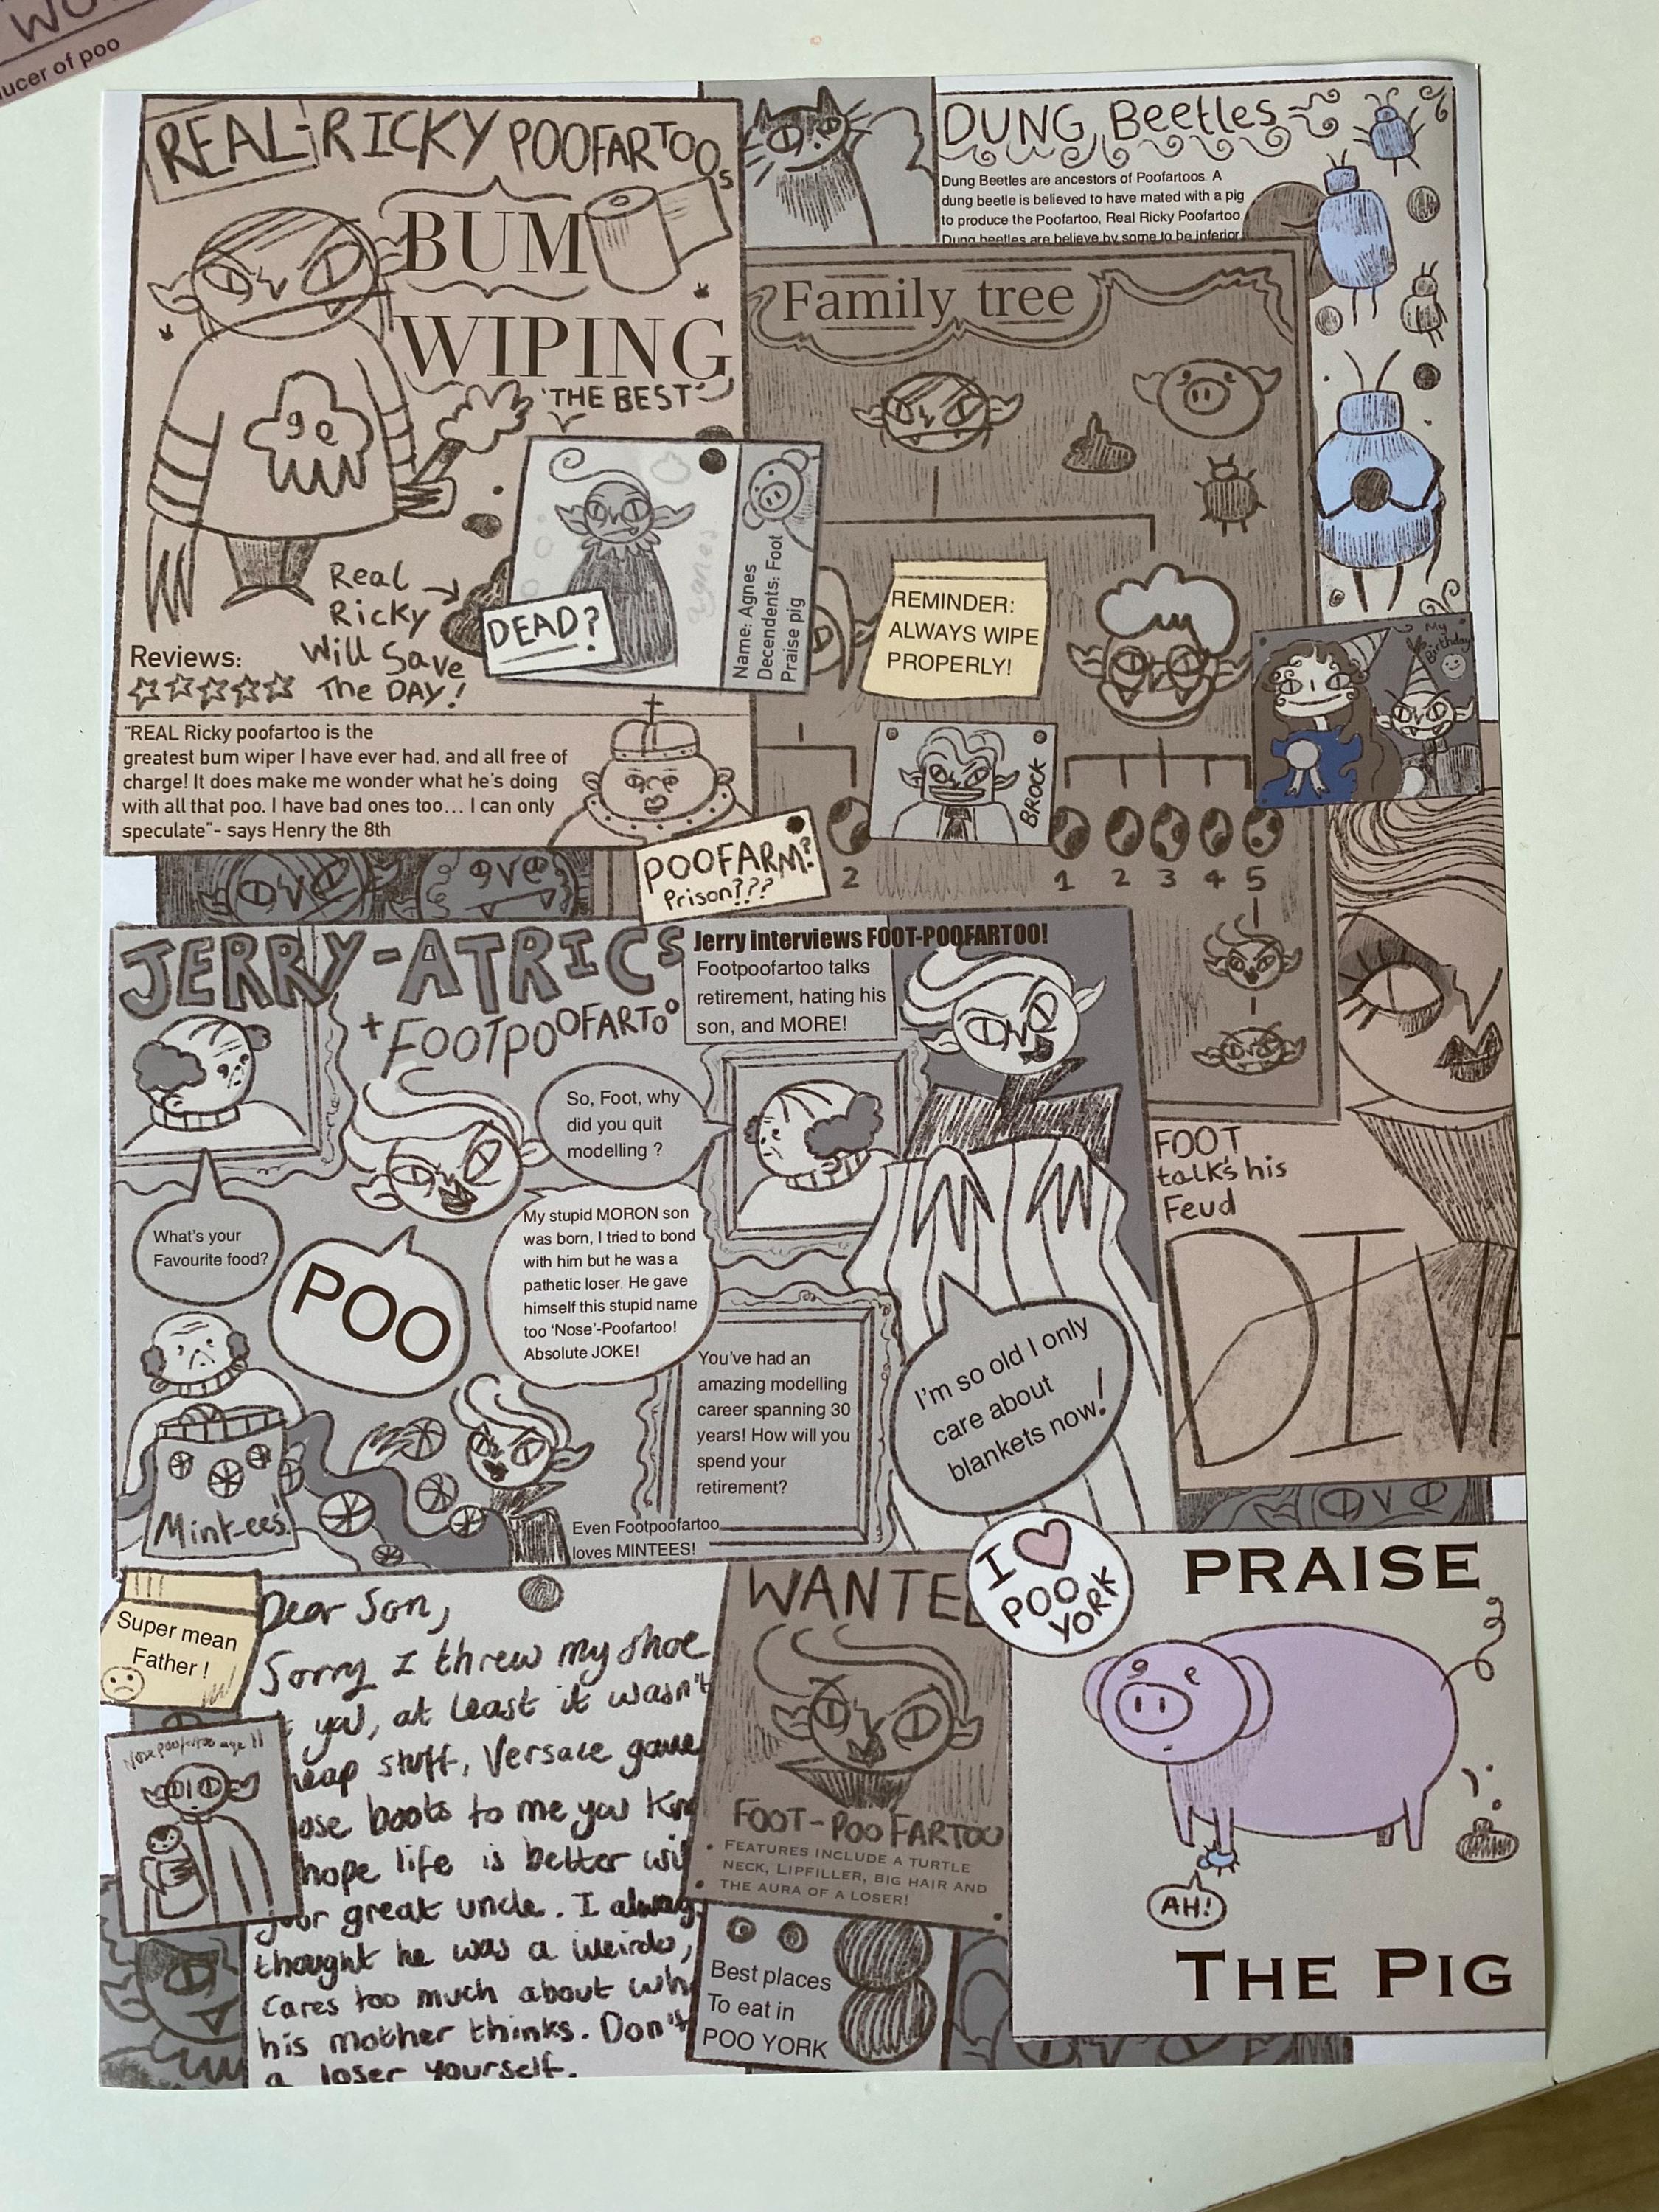 WO
ucer of poo
REAL-RICKY POOFARTOOs
BUM
WIPING
'THE BEST'
Real
Ricky
Will Save
The DAY!
Reviews:
"REAL Ricky poofartoo is the
greatest bum wiper I have ever had, and all free of
charge! It does make me wonder what he's doing
with all that poo. I have bad ones too... I can only
speculate"- says Henry the 8th
DUNG Beetles
Dung Beetles are ancestors of Poofartoos. A
dung beetle is believed to have mated with a pig
to produce the Poofartoo, Real Ricky Poofartoo
Dung beetles are believe by some to be inferior
Family tree
agnes
Name: Agnes
Decendents: Foot
Praise pig
DEAD?
REMINDER:
ALWAYS WIPE
PROPERLY!
My
Birthday
BROCK
POOFARM?
Prison???
2
1 2 3 4 5
JERRY-ATRICS
+ FOOTPOOFARTOO
Jerry interviews FOOT-POOFARTOO!
Footpoofartoo talks
retirement, hating his
son, and MORE!
So, Foot, why
did you quit
modelling ?
What's your
Favourite food?
POO
My stupid MORON son
was born, I tried to bond
with him but he was a
pathetic loser. He gave
himself this stupid name
too 'Nose'-Poofartoo!
Absolute JOKE!
You've had an
amazing modelling
career spanning 30
years! How will you
spend your
retirement?
I'm so old I only
care about
blankets now!
Mint-ees!
Even Footpoofartoo
loves MINTEES!
FOOT
talks his
Feud
DIV
Super mean
Father !
Nose poofartoo age 11
Dear Son,
Sorry I threw my shoe
you, at least it wasn't
heap stuff, Versace gave
ose boots to me you kn
hope life is better wi
your great uncle. I always
thought he was a weirdo,
Cares too much about wh
his mother thinks. Don't
a loser yourself.
WANTED
FOOT-POOFARTOO
FEATURES INCLUDE A TURTLE
NECK, LIPFILLER, BIG HAIR AND
THE AURA OF A LOSER!
I
POO
YORK
Best places
To eat in
POO YORK
PRAISE
AH!
THE PIG